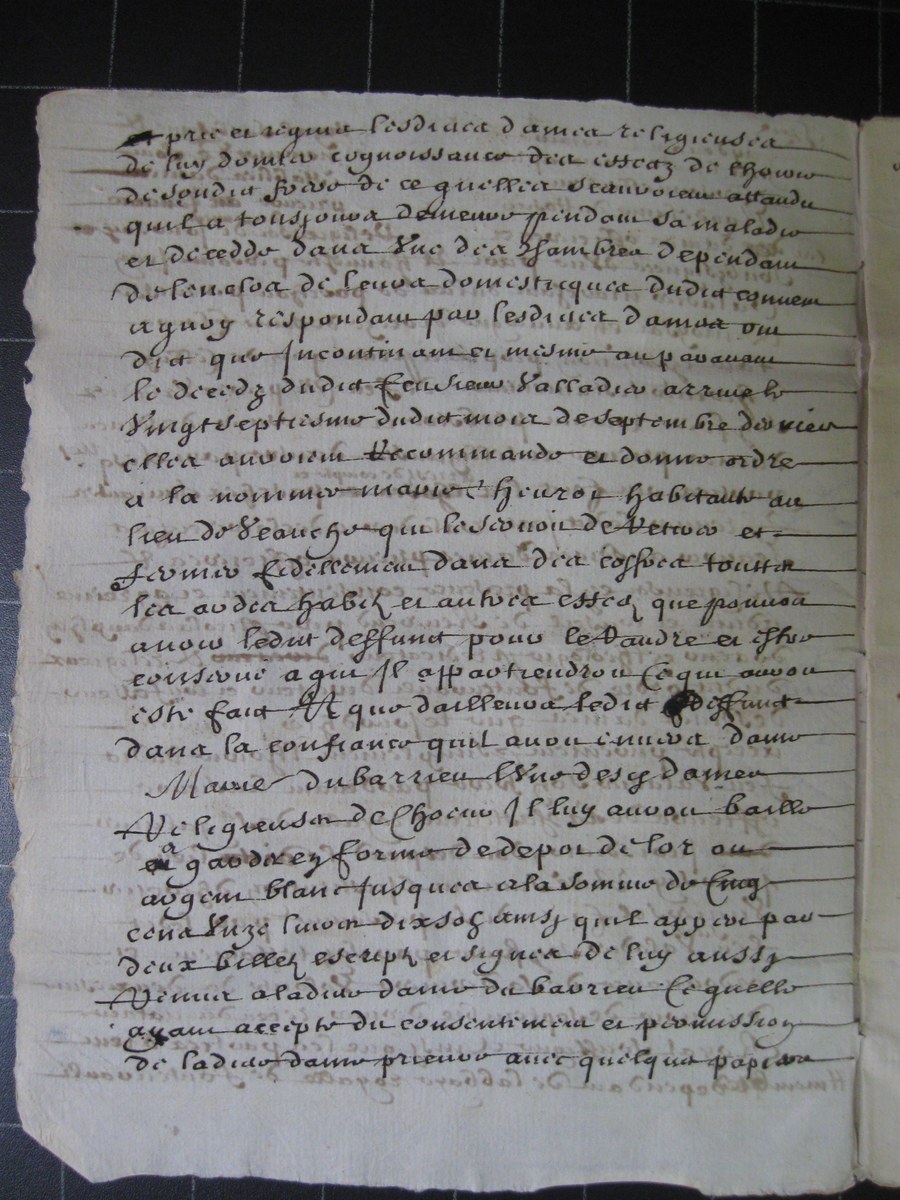 prie et requis lesdictes dames religieuses
de luy donner cognoissance des effectz de
de sondit frere de ce quelles scauvoient attandu
quil a tousjours demeure pendant sa maladie
et decedde dans une des chambres dependant
de lenclos de leurs domesticques dudit couvent
a quoy respondant par lesdictes dames ont
dict que incontinant et mesme auparavant
le decedz dudict feu sieur Valladier arrive le
vingt septiesme dudict mois de septembre dernier
elles avoient recommande et donne ordre
a la nommee marie heurot habitante au
lieu de Veauche qui le servoit de retirer et
fermer fidellement dans des coffres touttes
les ardes habitz et autres effectz que pouvoit
avoir ledit deffunct pour le randre et estre
conserve a qui il appartiendroit Ce qui avoit
este faict Et que dailleurs ledict deffunct
dans la confiance quil avoit envers dame
Marie dubarrieu lune desd dames
Religieuses de Choeur Il luy avoit baille
a garder en forme de depot de lor ou
argent blanc jusques a la somme de cinq
cens unze livres dix solz ainsy quil appert par
deux billetz escriptz et signes de luy aussy
remis a ladite dame du barrieu Ce quelle
ayant accepte du consentement et permission
de ladite dame prieure avec quelque papiers